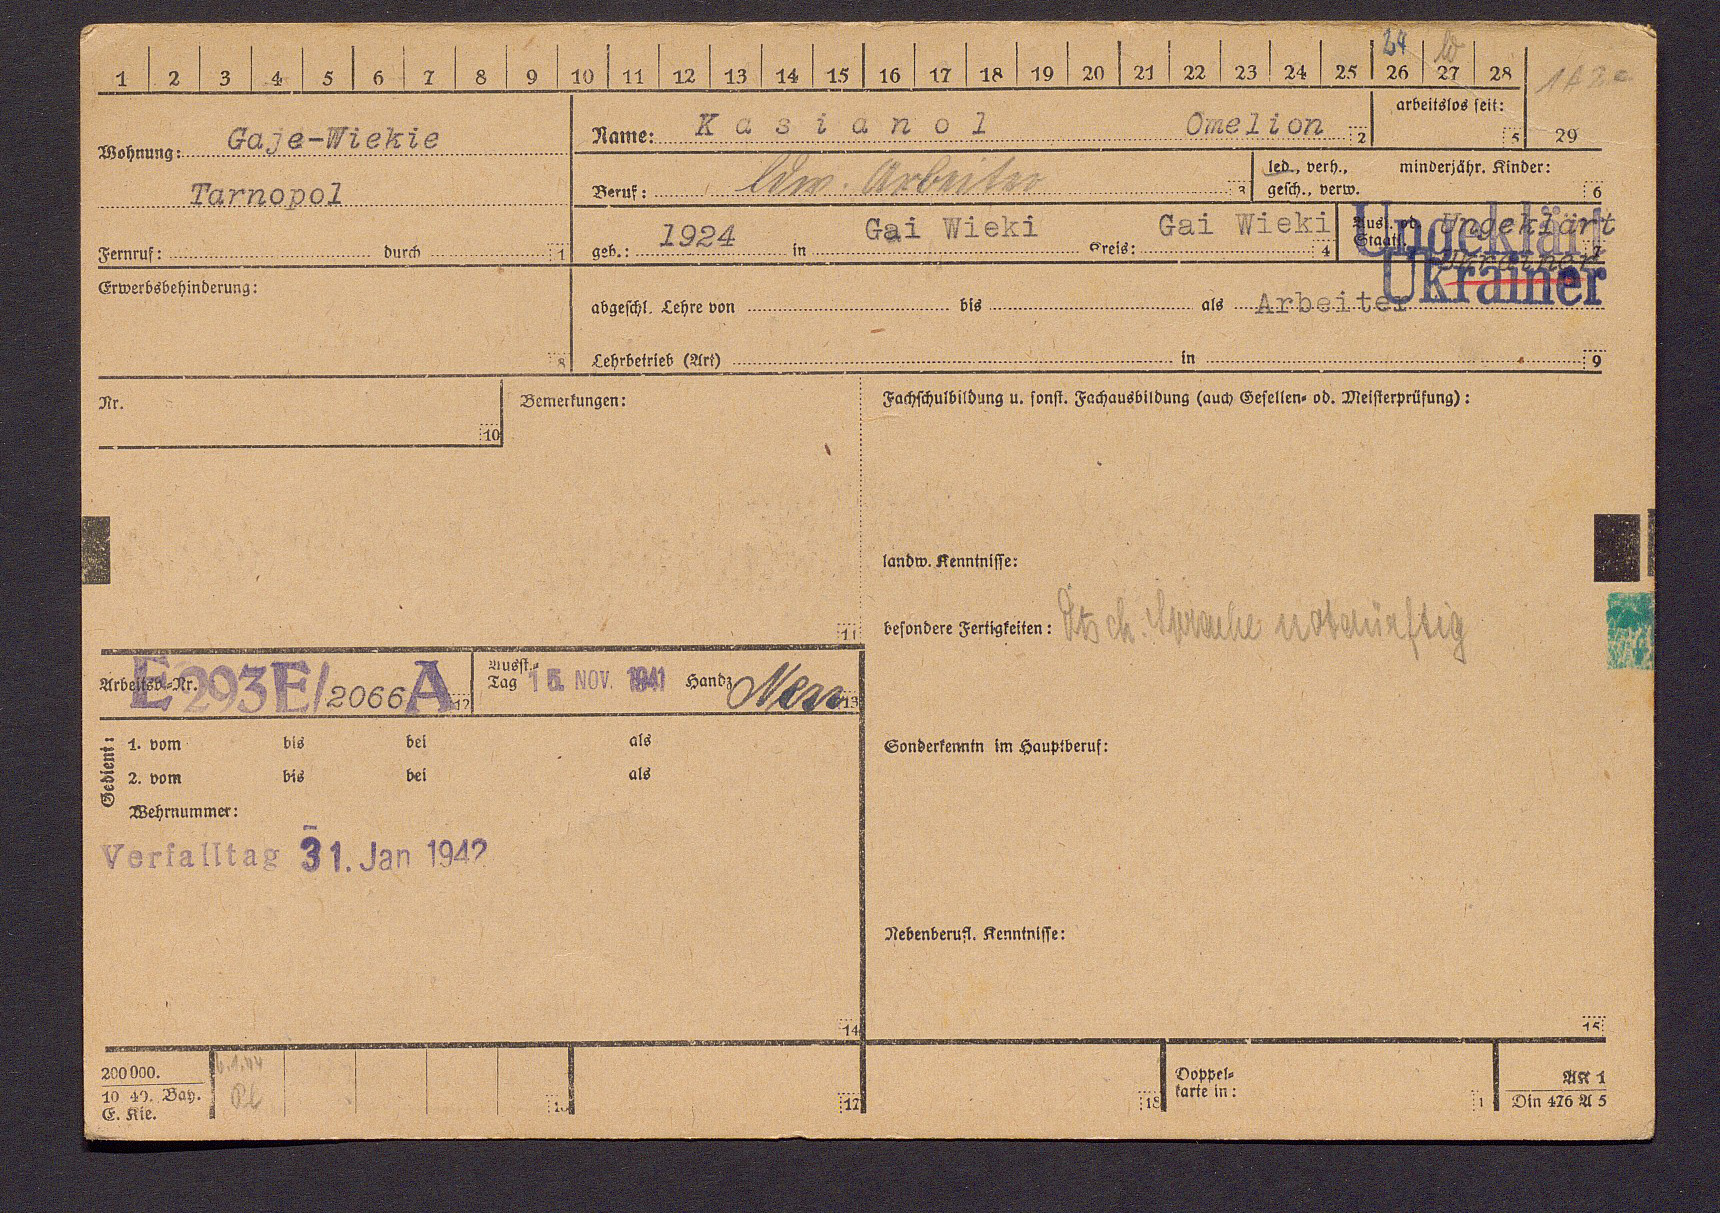 24
1 2 3 4 5 6 7 8 9 10 11 12 13 14 15 16 17 18 19 20 21 22 23 24 25 26 27 28
Wohnung: Gaje-Wiekie
Tarnopol
Fernruf: durch 1
Name: Kasianol Omelion 2
arbeitslos seit: 5 29
Beruf: ldw. Arbeiter 3
led., verh., gesch., verw. minderjähr. Kinder: 6
geb.: 1924 in Gai Wieki Kreis: Gai Wieki 4
Ausl. od. Staatl. Ungeklärt 7
Ukrainer
Ungeklärt
Ukrainer
Erwerbsbehinderung: 8
abgeschl. Lehre von bis als Arbeiter
Lehrbetrieb (Art) in 9
Nr. 10
Bemerkungen: 11
Fachschulbildung u. sonst. Fachausbildung (auch Gesellen- od. Meisterprüfung):
landw. Kenntnisse:
besondere Fertigkeiten: Dtsch. Sprache notdürftig
Arbeitsb.-Nr. E293E/2066A 12
Ausst.-Tag 15. NOV. 1941 Handz. 13
Gedient:
1. vom bis bei als
2. vom bis bei als
Wehrnummer:
Verfalltag 31. Jan 1942
Sonderkenntn im Hauptberuf:
Nebenberufl. Kenntnisse:
14 15
200000.
10 40. Bay.
E. Kie.
17 18
Doppelkarte in: 1
AK 1
Din 476 A 5